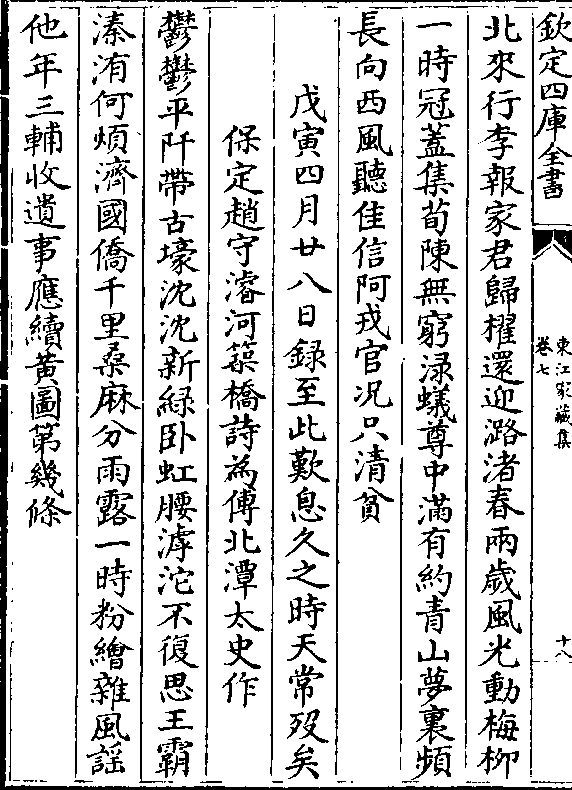 欽定四庫全書
東江家藏集
卷七
十八
北來行李報家君歸櫂還迎潞渚春兩歲風光動梅柳
一時冠蓋集荀陳無窮渌蟻尊中滿有約青山夢裏頻
長向西風聽佳信阿戎官况只清貧
戊寅四月廿八日録至此歎息久之時天常殁矣
保定趙守濬河築橋詩為傅北潭太史作
鬱鬱平阡帶古壕沈沈新緑卧虹腰滹沱不復思王霸
溱洧何煩濟國僑千里桑麻分雨露一時粉繪雜風謡
他年三輔收遺事應續黄圖第幾條